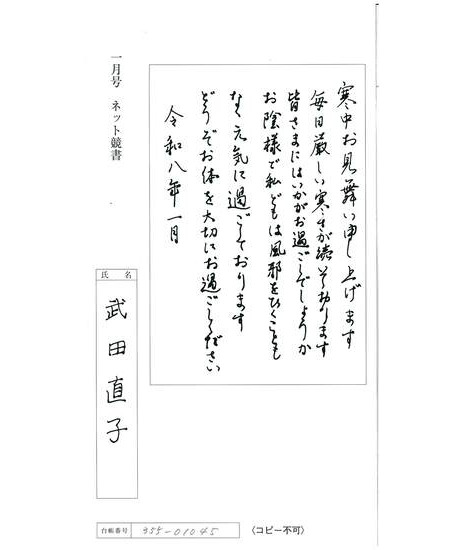 寒中お見舞い申し上げます
毎日厳しい寒さが続いております
皆さまにはいかがお過ごしでしょうか
お陰様で私どもは風邪をひくことも
なく元気に過ごしております
どうぞお体を大切にお過ごしください
令和八年一月
一月号 ネット競書
氏名
武田直子
台帳番号 955-01045
〈コピー不可〉